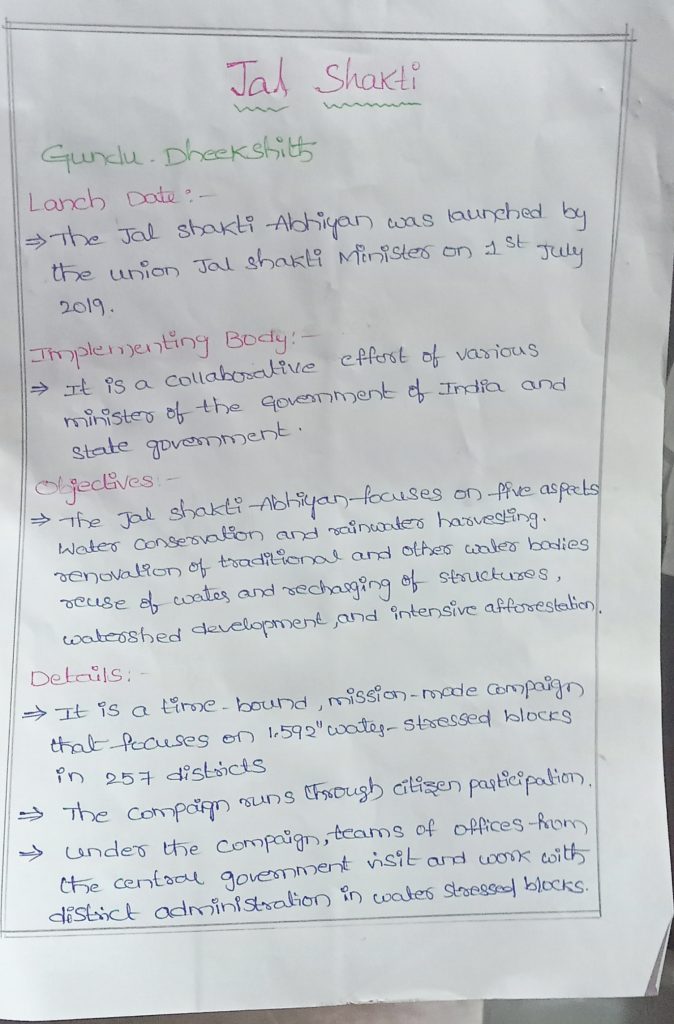 Jal Shakti
Gundu. Dheekshith
Lanch Date :-
⇒ The Jal shakti Abhiyan was launched by
the union Jal shakti Minister on 1st July
2019.
Implementing Body:-
⇒ It is a collaborative effort of various
minister of the Government of India and
state government.
Objectives :-
⇒ The Jal shakti Abhiyan focuses on five aspects
Water conservation and rainwater harvesting.
renovation of traditional and other water bodies
reuse of water and recharging of structures,
watershed development, and intensive afforestation.
Details: -
⇒ It is a time-bound, mission-mode compaign
that focuses on 1.592" water-stressed blocks
in 257 districts
⇒ The compaign runs through citizen participation.
⇒ under the compaign, teams of offices from
the central government visit and work with
district administration in water stressed blocks.